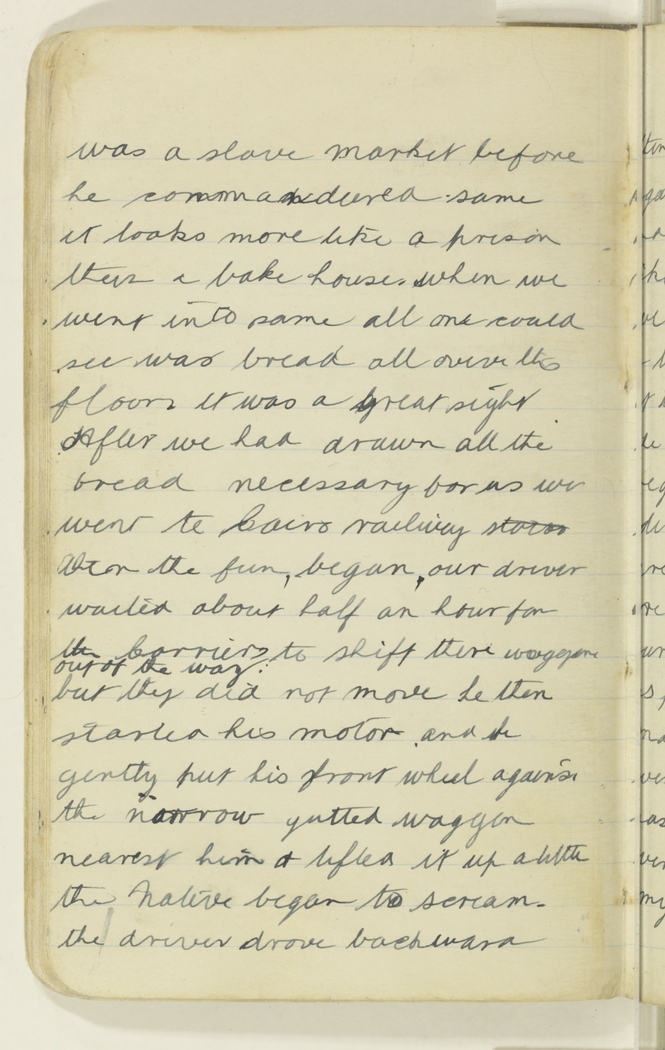 was a slave market before
he commandured same
it looks more like a prison
then a bake house. when we
went into same all one could
see was bread all over the
floors it was a great sight
After we had drawn all the
bread necessary for us we
went to Cairo railway
the fun, began, our driver
waited about half an hour for
the Carriers to shift there waggons
out of the way.
but they did not move he then
started his motor and he
gently put his front wheel against
the narrow gutted waggon
nearest him & lifted it up a little
the Native began to scream.
the driver drove backward